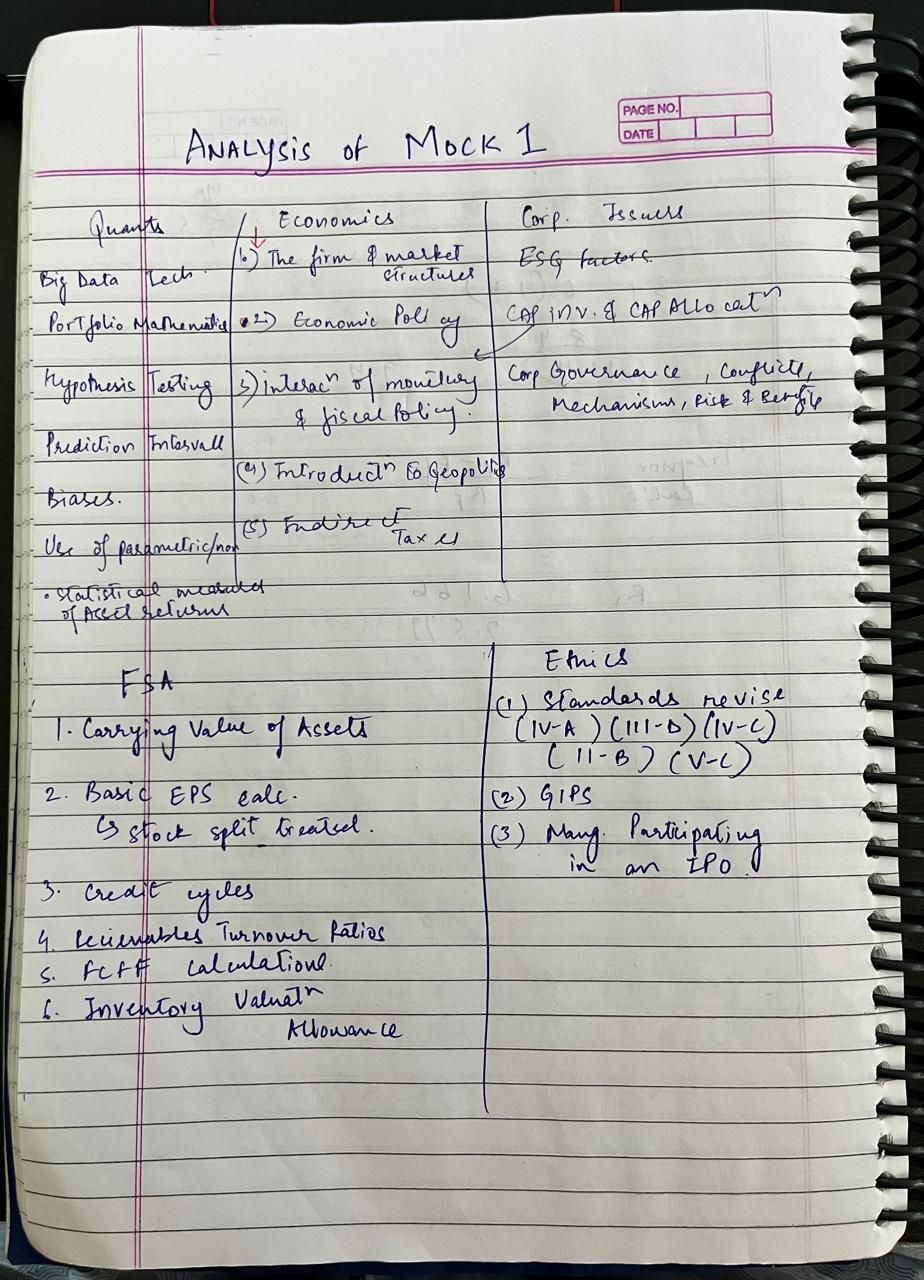 PAGE NO.
DATE
ANALYSIS of MOCK 1
Quants
Big Data Tech.
Portfolio Mathematics
Hypothesis Testing
Prediction Intervall
Biases.
Use of parametric/non
• Statistical measures
of Asset returns
Economics
1.) The firm & market
structures
2) Economic Policy
3) interacⁿ of monetary
& fiscal Policy.
(4) Introductⁿ to Geopolitics
(5) Indirect
Taxes
Corp. Issuers
ESG factors.
CAP inv. & CAP Allocatⁿ
Corp Governance, Conflicts,
Mechanisms, Risk & Benefits
FSA
1. Carrying Value of Assets
2. Basic EPS calc.
↳ stock split
3. Credit cycles
4. Turnover Ratios
5. FCFF calculations.
6. Inventory Valuatⁿ
Allowance
Ethics
(1) Standards revise
(IV-A) (III-D) (IV-C)
(II-B) (V-C)
(2) GIPS
(3) Mang. Participating
in an IPO.